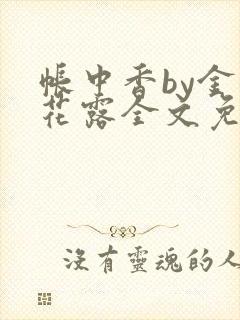 帳中香by金
花露全文免
沒有靈魂的人